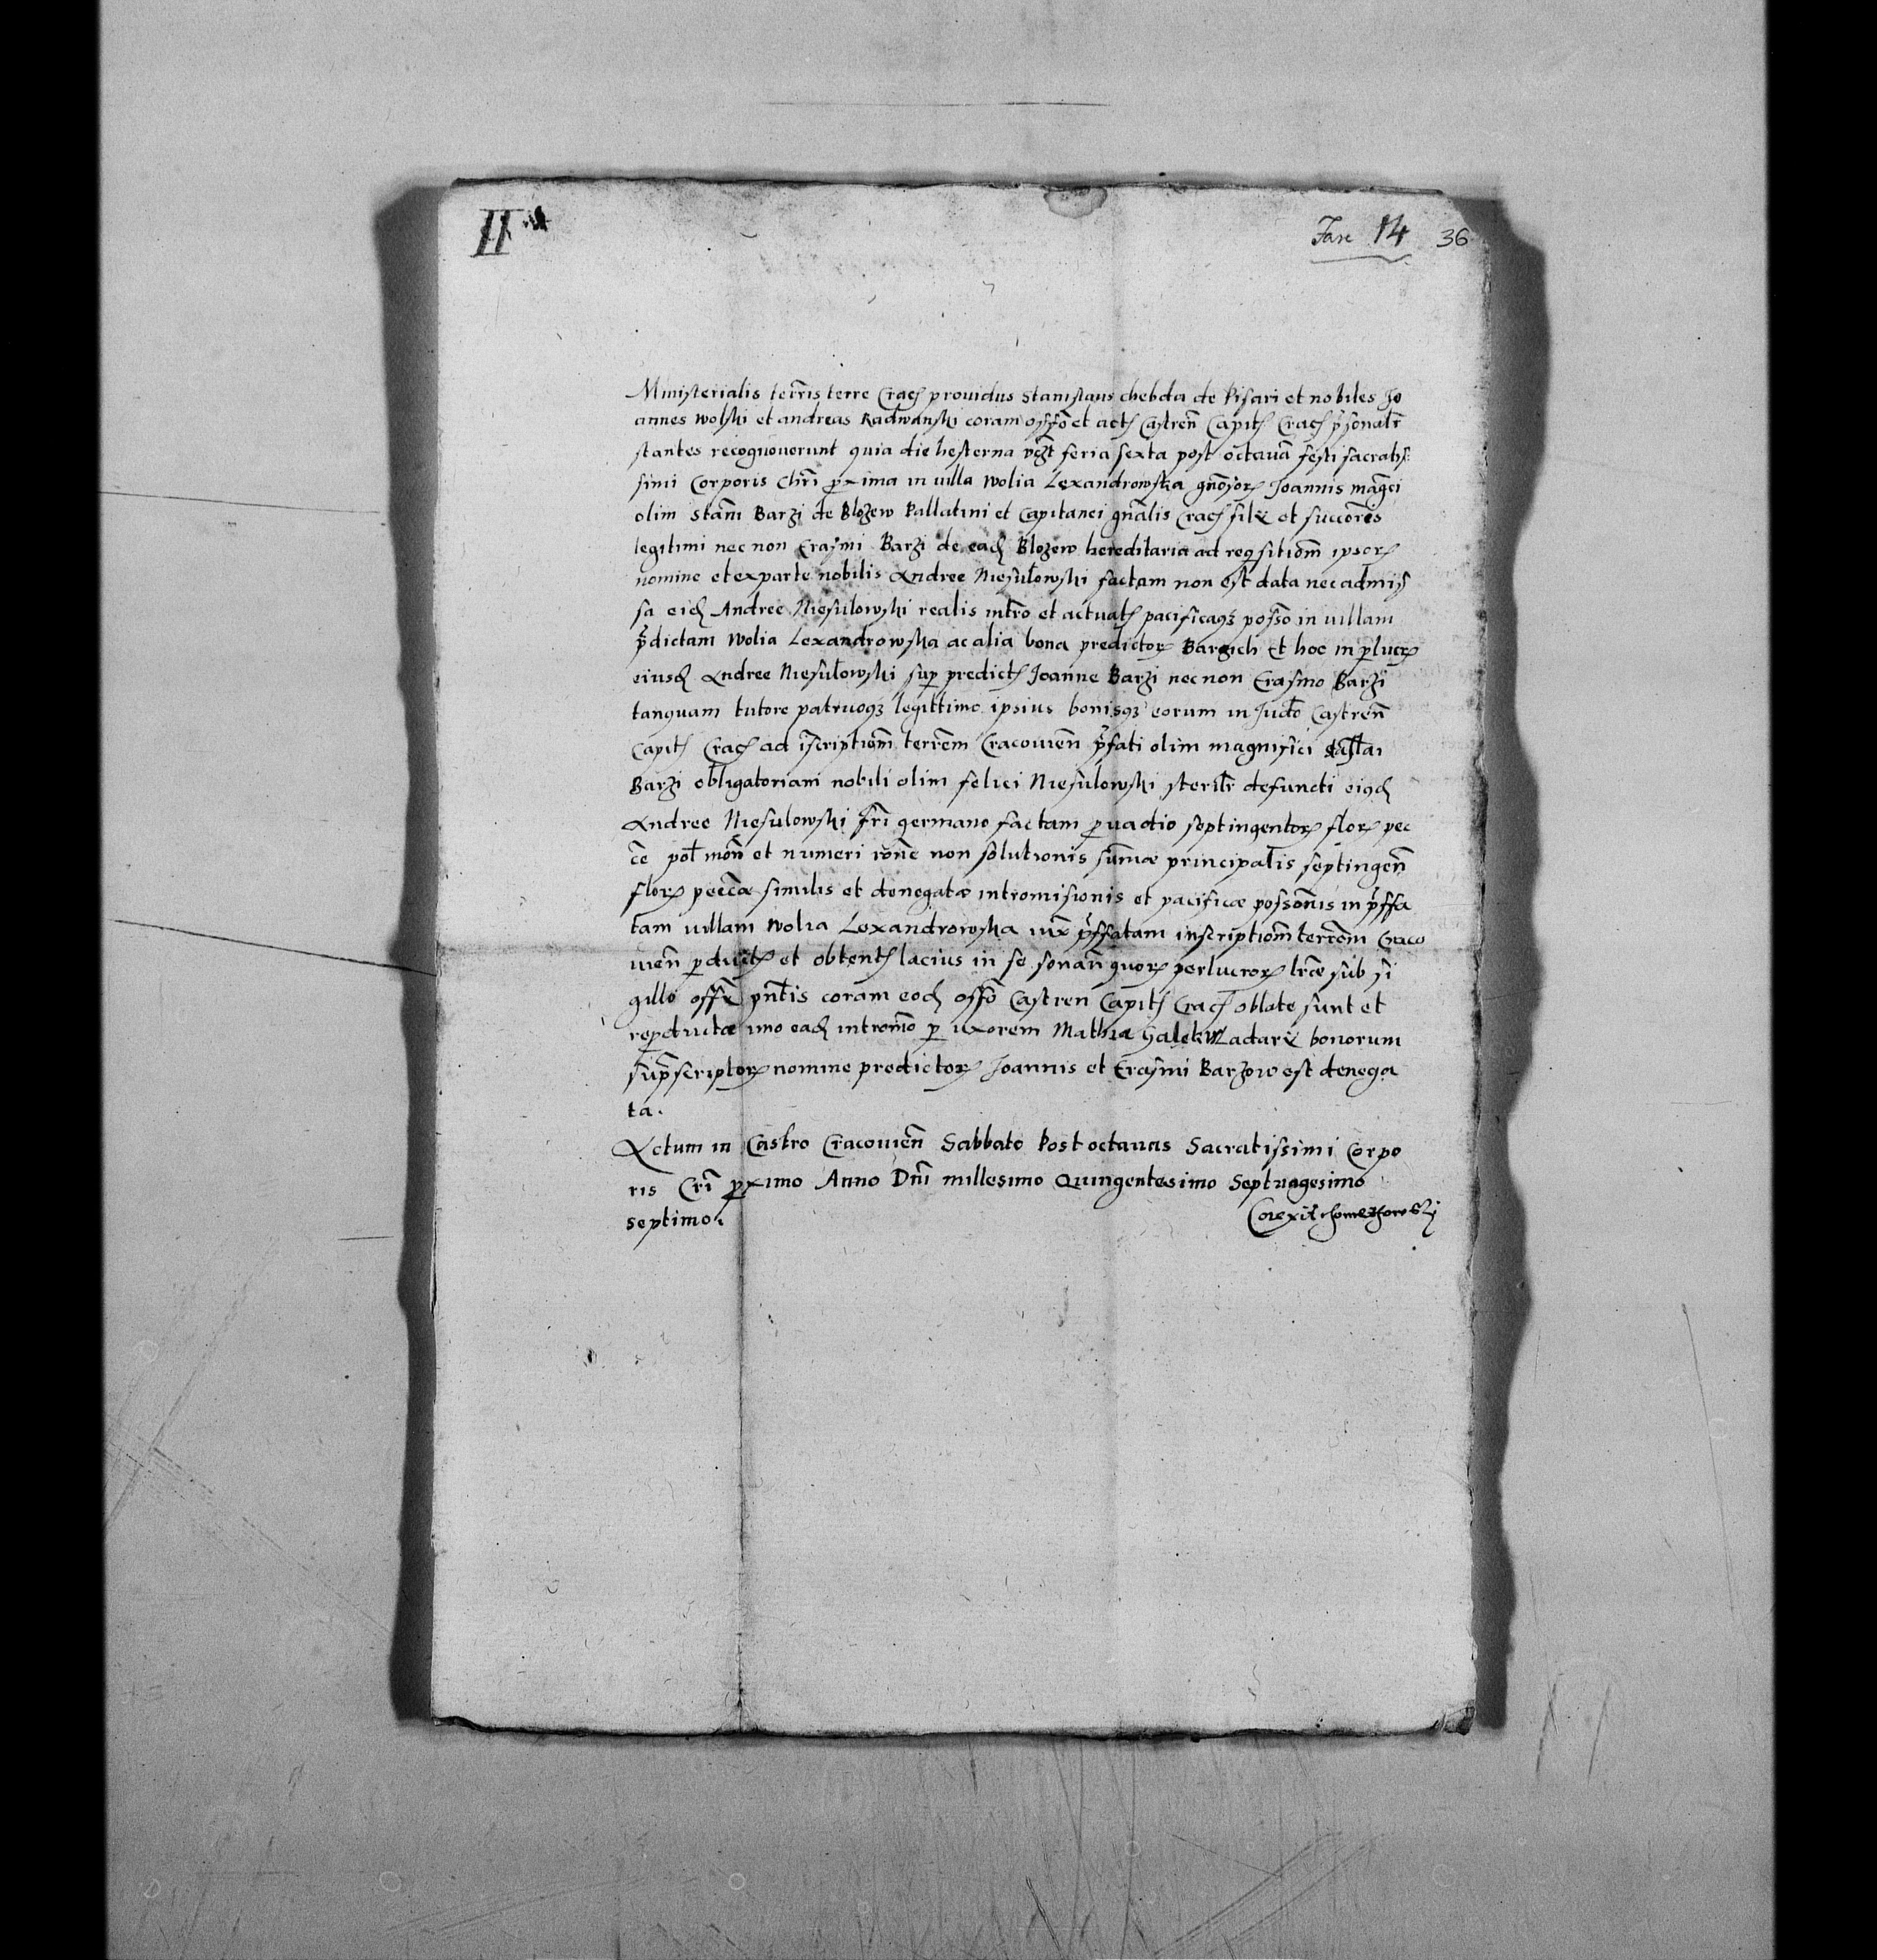 II
Fasc 14 36
Ministerialis terrīs terre Crac̄ prouidus Stanislaus chebda de Pisari et nobiles Jo
annes Wolski et andreas Radwanski coram offō et act̄ Castren̄ Capit̄ Crac̄ p̄sonalr̄
stantes recognouerunt quia die hesterna vc̄zt feria sexta post octauā festi sacratis
simi Corporis Chrī proxima in villa Wolia Lexandrowska gn̄osor̄ Joannis maḡci
olim Stanī Barzi de Blozew Pallatini et Capitanei gn̄alis Crac̄ filii et succoris
legitimi nec non Erasmi Barzi de ead̄ Blozew hereditaria ad reqsitiom̄ ipsor̄
nomine et ex parte nobilis Andree Niesulowski factam non est data nec admis
sa eid̄ Andree Niesulowski realis intr̄o et actualis pacificaqz possō in villam
p̄dictam Wolia Lexandrowska ac alia bona predictor̄ Barzich Et hoc in perlucr̄
eiusd̄ Andree Niesulowski sup predict̄ Joanne Barzi nec non Erasmo Barzi
tanquam tutore patruoqz legittimo ipsius bonisqz eorum in Judō Castren̄
Capit̄ Crac̄ ad īscriptiom̄ terrēm Cracouien̄ p̄fati olim magnifici
Barzi obligatoriam nobili olim felici Niesulowski sterilr̄ defuncti eiqd̄
Andree Niesulowski fr̄i germano factam p vadio septingentor̄ flor̄ pec
c̄e pol̄ mon̄ et numeri rōne non solutionis sum̄æ principalis septingen̄
flor̄ pecc̄æ similis et denegatæ intromisionis et pacificæ possōnis in p̄ffa
tam villam Wolia Lexandrowska iux̄ p̄ffatam inscriptiom̄ terrēm Craco
uien̄ pduct̄ et obtent̄ lacius in se sonan̄ quor̄ perlucror̄ lr̄æ sub si
gillo offii pn̄tis coram eod̄ offō Castren Capit̄ Crac̄ oblate sunt et
repductæ imo ead̄ intromō p uxorem Mathiæ bonorum
sup̄scriptor̄ nomine predictor̄ Joannis et Erasmi Barzow est denega
ta.
Actum in Castro Cracouien̄ Sabbato Post octauas Sacratissimi Corpo
ris Crī proximo Anno Dn̄i millesimo Quingentesimo Septuagesimo
septimo.
Corexit